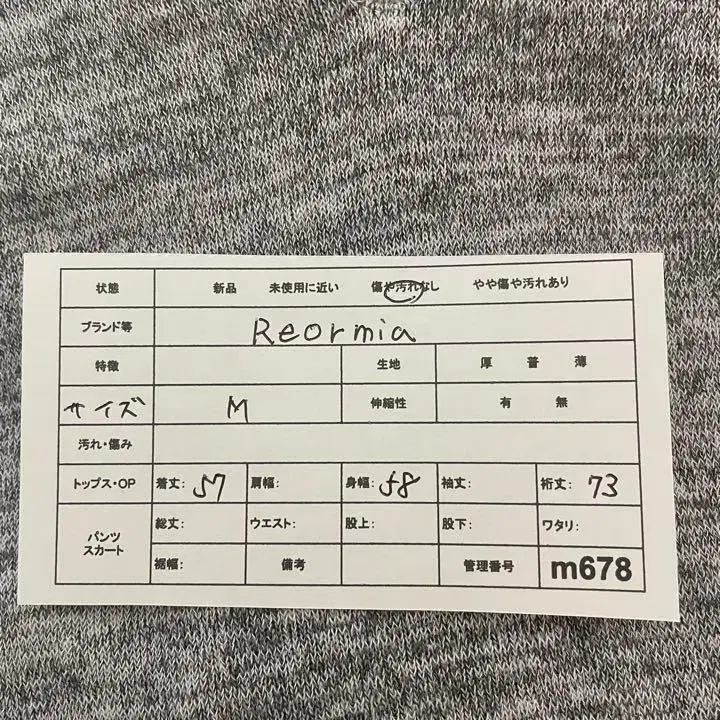 状態 新品 未使用に近い 傷や汚れなし やや傷や汚れあり
ブランド等 Reormia
特徴 生地 厚 普 薄
サイズ M 伸縮性 有 無
汚れ・傷み
トップス・OP 着丈: 57 肩幅: 身幅: 58 袖丈: 裄丈: 73
パンツ スカート 総丈: ウエスト: 股上: 股下: ワタリ:
裾幅: 備考 管理番号 m678